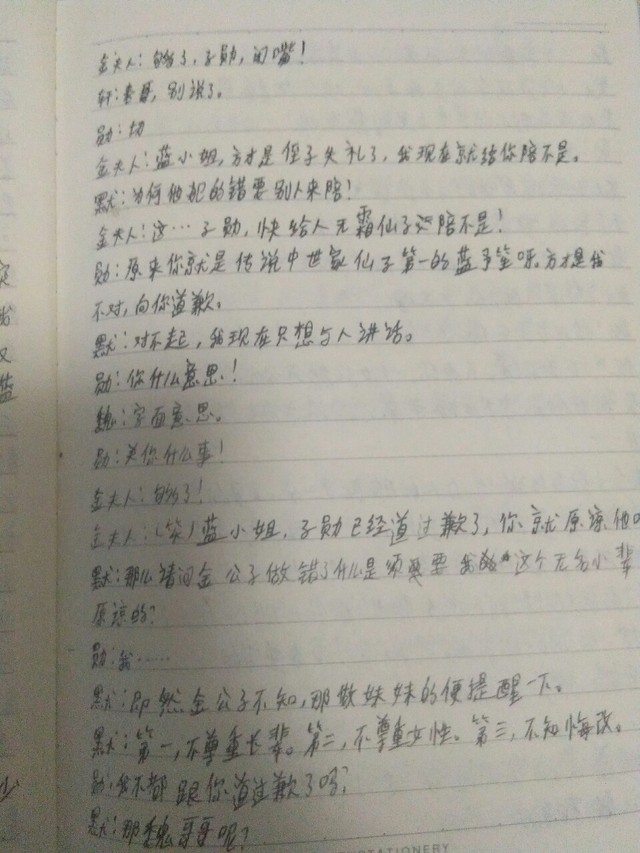 金夫人：够了，子勋，闭嘴！
轩：表哥，别说了。
勋：切
金夫人：蓝小姐，方才是侄子失礼了，我现在就给你陪不是。
默：为何他犯的错要别人来陪！
金夫人：这…子勋，快给人无霜仙子 陪不是！
勋：原来你就是传说中世家仙子第一的蓝予笙呀。方才是我
不对，向你道歉。
默：对不起，我现在只想与人讲话。
勋：你什么意思！
魏：字面意思。
勋：关你什么事！
金夫人：够了！
金夫人：（笑）蓝小姐，子勋已经道过歉了，你就原谅他吧
默：那么请问金公子做错了什么是须要我 这个无名小辈
原谅的？
勋：我……
默：即然金公子不知，那做妹妹的便提醒一下。
默：第一，不尊重长辈。第二，不尊重女性。第三，不知悔改。
勋：我不都跟你道过歉了吗？
默：那魏哥哥呢？
STATIONERY